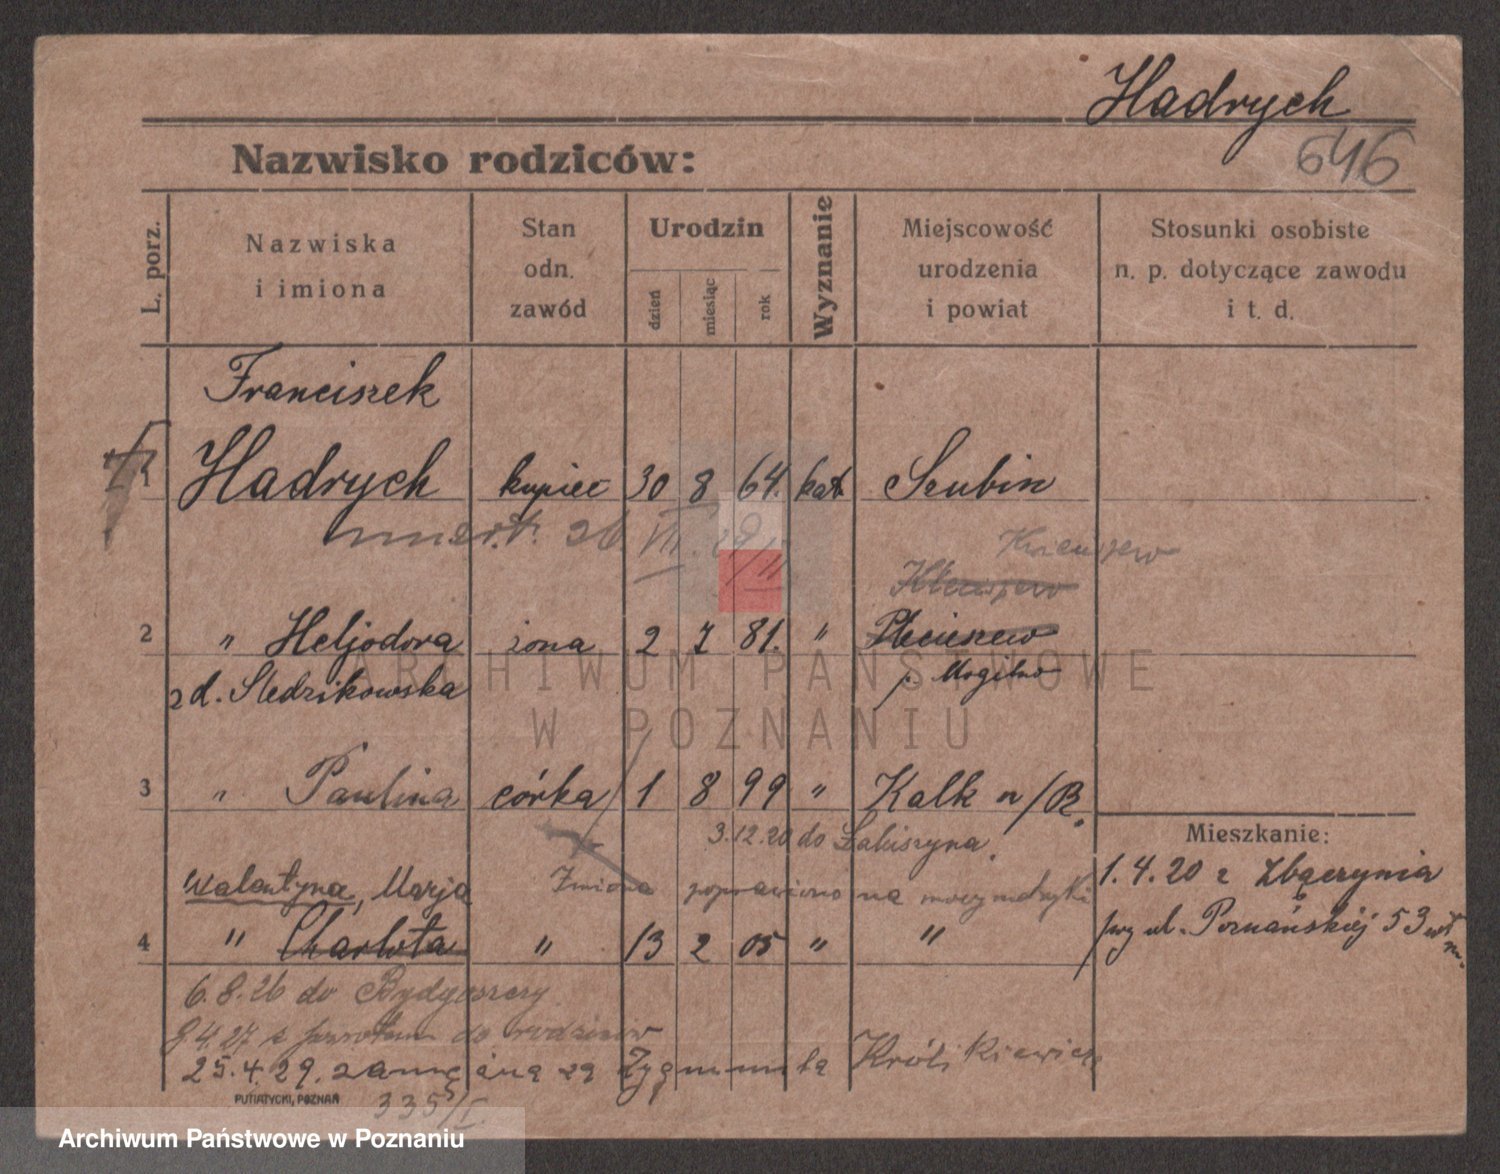 Hadrych
646
Nazwisko rodziców:
L. porz.
Nazwiska
i imiona
Stan
odn.
zawód
Urodzin
dzień
miesiąc
rok
Wyznanie
Miejscowość
urodzenia
i powiat
Stosunki osobiste
n. p. dotyczące zawodu
i t. d.
Franciszek
1 Hadrych kupiec 30 8 64. kat Szubin
umert. 26 VII.
2 " Heljodora żona 2 7 81. "
z d. Sledzikowska p. Mogilno
3 " Paulina córka 1 8 99 " Kalk n/R.
3.12.20 do Łabiszyna.
Mieszkanie:
1.4.20 z Zbączynia
przy ul. Poznańskiej 53
Walentyna, Marja Zmiana poprawiono na mocy metryki
4 " Charlota " 13 2 05 " "
6.8.26 do Bydgoszczy
9.4.27 z powrotem do rodziców
25.4.29. zamężna za Zygmunta Królikiewicz
PUTIATYCKI, POZNAŃ
335/I.
ARCHIWUM PAŃSTWOWE
W POZNANIU
Archiwum Państwowe w Poznaniu